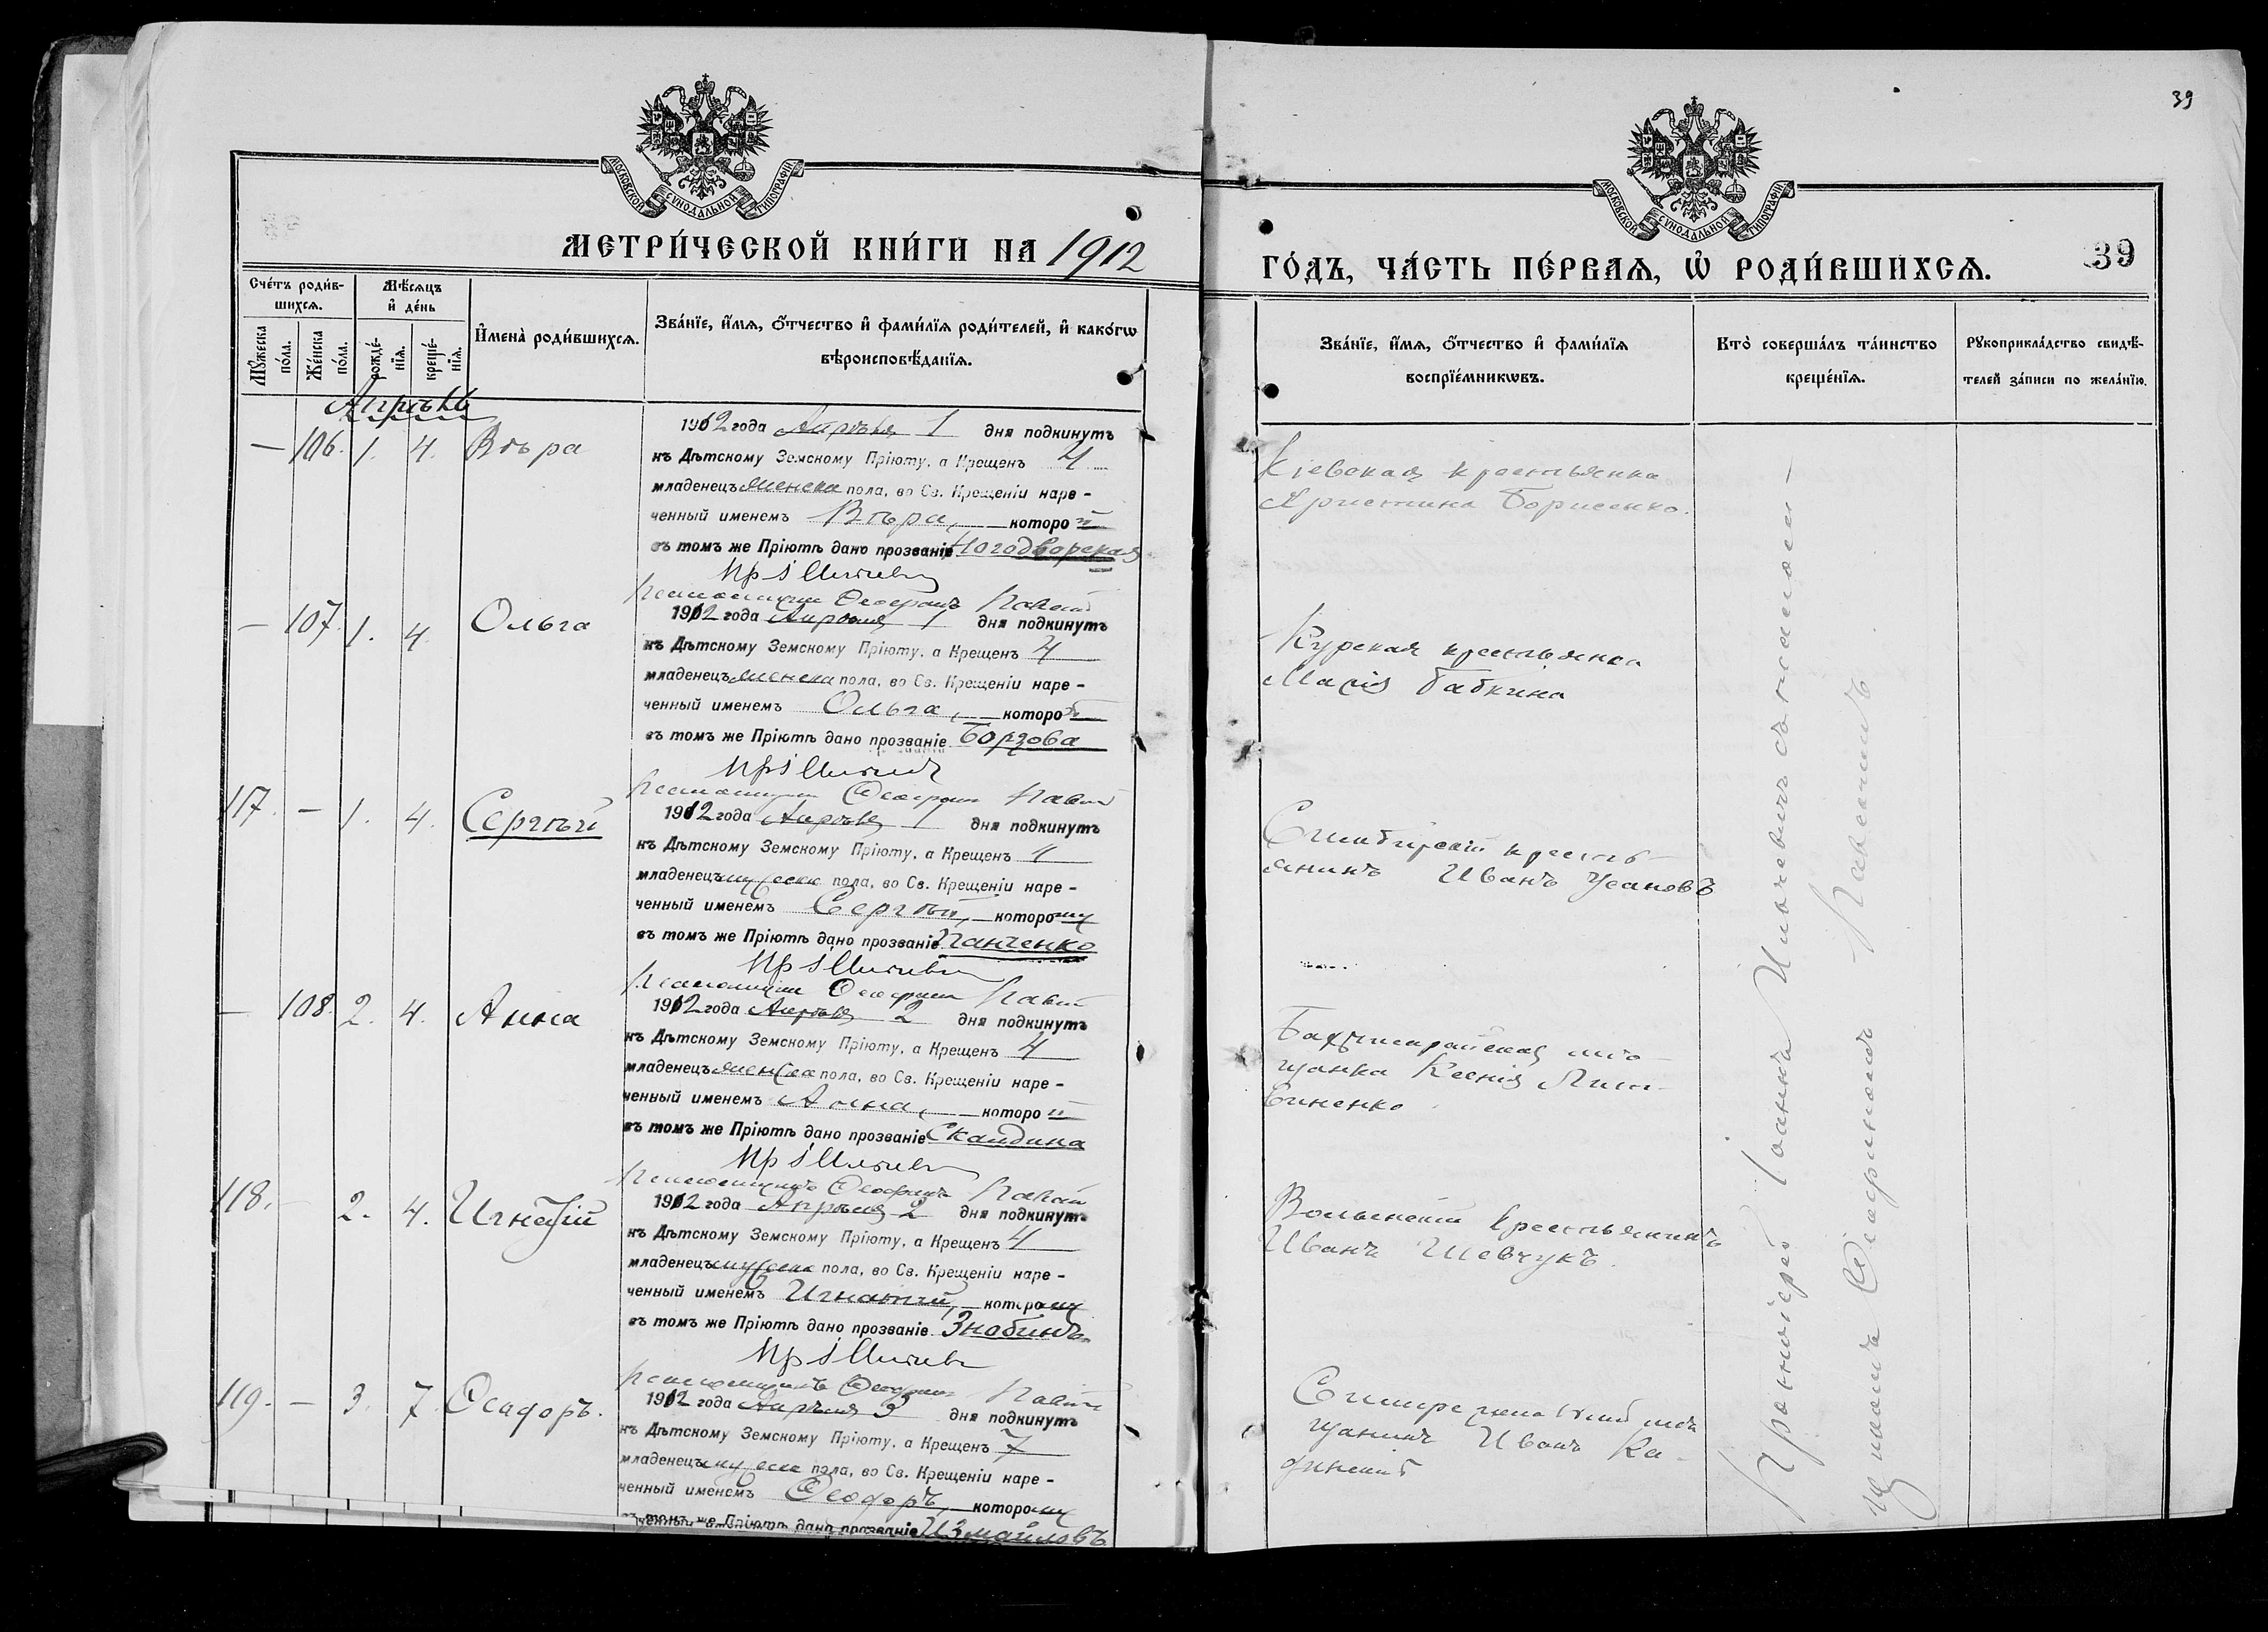 39
МОСКОВСКОЙ СѴНОДАЛЬНОЙ ТИПОГРАФІИ
МОСКОВСКОЙ СѴНОДАЛЬНОЙ ТИПОГРАФІИ
МЕТРИ́ЧЕСКОЙ КНИ́ГИ НА 1912
ГО́ДЪ, ЧА́СТЬ ПЕ́РВАѦ, Ѡ҆ РОДИ́ВШИХСѦ.
39
Сче́тъ роди́в-
шихсѧ.
Мѣ́сѧцъ
и҆ де́нь
Мꙋ́жеска по́ла.
Же́нска по́ла.
рожде́-нїѧ.
креще́-нїѧ.
И҆мена̀ роди́вшихсѧ.
Зва́нїе, и҆́мѧ, ѻ҆́тчество и҆ фами́лїѧ роди́телей, и҆ како́гѡ
вѣроисповѣ́данїѧ.
Зва́нїе, и҆́мѧ, ѻ҆́тчество и҆ фами́лїѧ
воспрїе́мникѡвъ.
Кто̀ соверша́лъ та́инство
креще́нїѧ.
Рꙋкоприкла́дство свидѣ́-
телей за́писи по жела́нїю.
Апрѣль
— 106. 1. 4. Вѣра
1912 года Апрѣля 1 дня подкинутъ
къ Дѣтскому Земскому Пріюту, а Крещенъ 4
младенецъ женска пола, во Св. Крещеніи наре-
ченный именемъ Вѣра, которой
въ томъ же Пріютѣ дано прозваніе
Кіевская крестьянка
Христина Борисенко.
— 107. 1. 4. Ольга
Псаломщикъ Ѳеофанъ
1912 года Апрѣля 1 дня подкинутъ
къ Дѣтскому Земскому Пріюту, а Крещенъ 4
младенецъ женска пола, во Св. Крещеніи наре-
ченный именемъ Ольга, которой
въ томъ же Пріютѣ дано прозваніе Борзова
Курская крестьянка
Марія Бабкина
117. — 1. 4. Сергѣй
Псаломщикъ Ѳеофанъ
1912 года Апрѣля 1 дня подкинутъ
къ Дѣтскому Земскому Пріюту, а Крещенъ 4
младенецъ мужеска пола, во Св. Крещеніи наре-
ченный именемъ Сергѣй, которому
въ томъ же Пріютѣ дано прозваніе Панченко
Симбирскій кресть-
янинъ Иванъ Усановъ
— 108. 2. 4. Анна
Псаломщикъ Ѳеофанъ
1912 года Апрѣля 2 дня подкинутъ
къ Дѣтскому Земскому Пріюту, а Крещенъ 4
младенецъ женска пола, во Св. Крещеніи наре-
ченный именемъ Анна, которой
въ томъ же Пріютѣ дано прозваніе Скандина
Бахчисарайская мѣ-
щанка Ксенія Лит-
виненко
118. — 2. 4. Игнатій
Псаломщикъ Ѳеофанъ
1912 года Апрѣля 2 дня подкинутъ
къ Дѣтскому Земскому Пріюту, а Крещенъ 4
младенецъ мужеска пола, во Св. Крещеніи наре-
ченный именемъ Игнатій, которому
въ томъ же Пріютѣ дано прозваніе Знобинъ
Волынскій крестьянинъ
Иванъ Шевчукъ.
119. — 3. 7. Ѳеодоръ.
Псаломщикъ Ѳеофанъ
1912 года Апрѣля 3 дня подкинутъ
къ Дѣтскому Земскому Пріюту, а Крещенъ 7
младенецъ мужеска пола, во Св. Крещеніи наре-
ченный именемъ Ѳеодоръ, которому
въ томъ же Пріютѣ дано прозваніе Измайловъ
мѣ-
щанинъ Иванъ Ка-
Протоіерей Іоаннъ съ псалом-
щикомъ Ѳеофаномъ